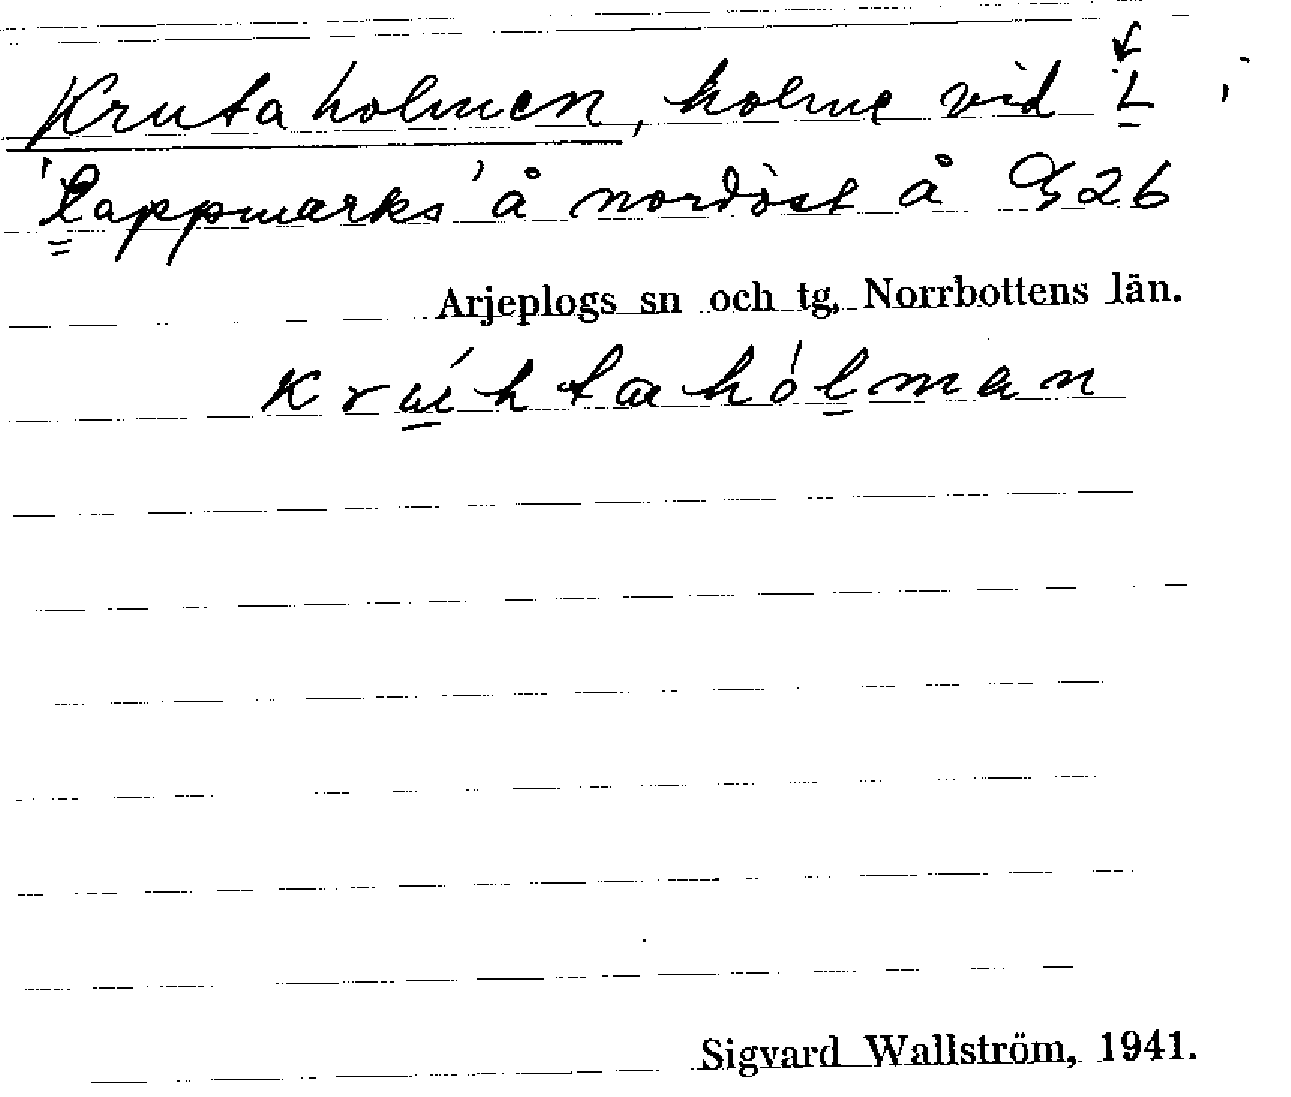 Krutaholmen, holme vid 'L' i
'Lappmarks' å nordöst å G26
Arjeplogs sn och tg, Norrbottens län.
kruhtahólman
Sigvard Wallström, 1941.